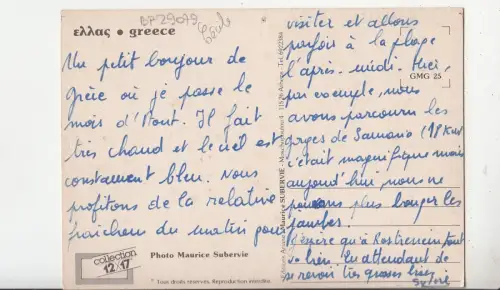 ελλας • greece
Un petit bonjour de
Grèce où je passe le
mois d'Aout. Il fait
très chaud et le ciel est
constament bleu. Nous
profitons de la relative
fraicheur du matin pour
collection
12 17
Photo Maurice Subervie
* Tous droits réservés. Reproduction interdite.
visiter et allons
parfois à la plage
l'après-midi. Hier,
GMG 25
par exemple, nous
avons parcouru les
gorges de Samaria (18 Km)
c'était magnifique mais
aujourd'hui nous ne
pouvons plus bouger les
jambes.
J'espère qu'à Rostrenen tout
va bien. En attendant de
se revoir très grosses bises
Maurice SUBERVIE